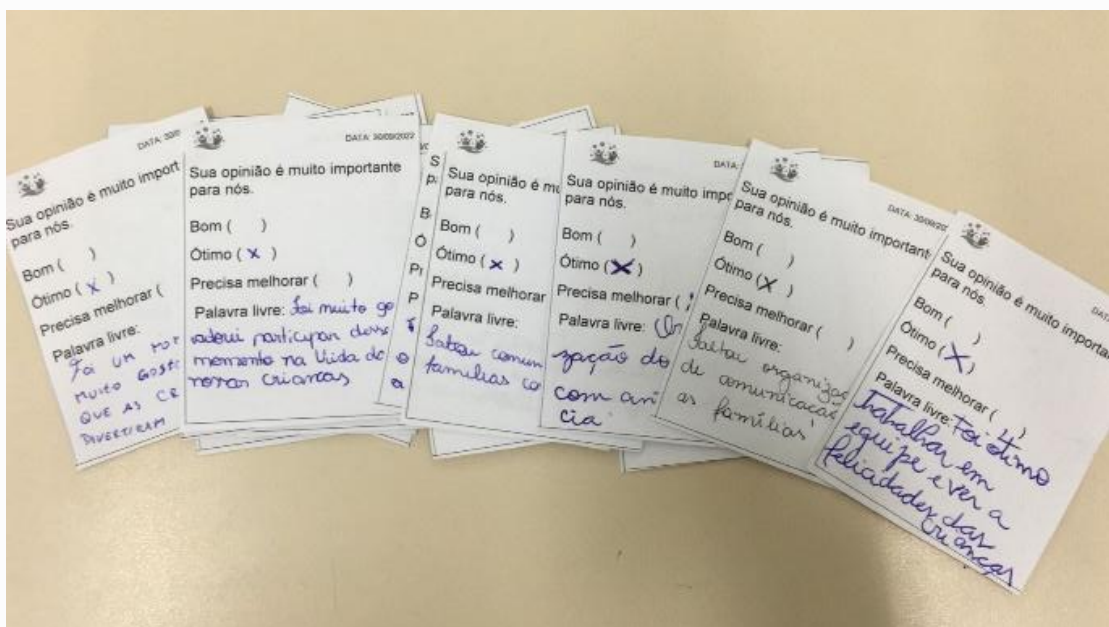 DATA: 30/0
Sua opinião é muito import
para nós.
Bom ( )
Ótimo ( x )
Precisa melhorar (
Palavra livre:
Foi UM MO
MUITO GOST
QUE AS CR
DIVERTIRAM
DATA: 30/09/2022
Sua opinião é muito importante
para nós.
Bom ( )
Ótimo ( x )
Precisa melhorar ( )
Palavra livre: Foi muito go
participar desse
momento na vida de
nossas crianças
S
p
B
Ó
Pr
P
o
a
Sua opinião é mu
para nós.
Bom ( )
Ótimo ( x )
Precisa melhorar
Palavra livre:
Faltou comun
famílias co
DATA:
Sua opinião é muito impo
para nós.
Bom ( )
Ótimo ( X )
Precisa melhorar (
Palavra livre: Or
zação do
com an
cia
DATA: 30/09/20
Sua opinião é muito important
para nós.
Bom ( )
Ótimo ( X )
Precisa melhorar ( )
Palavra livre:
Faltou organizaç
de comunicaçã
as famílias
DA
Sua opinião é muito importa
para nós.
Bom ( )
Ótimo ( X )
Precisa melhorar ( )
Palavra livre: Foi ótimo
trabalhar em
equipe e ver a
felicidades das
crianças